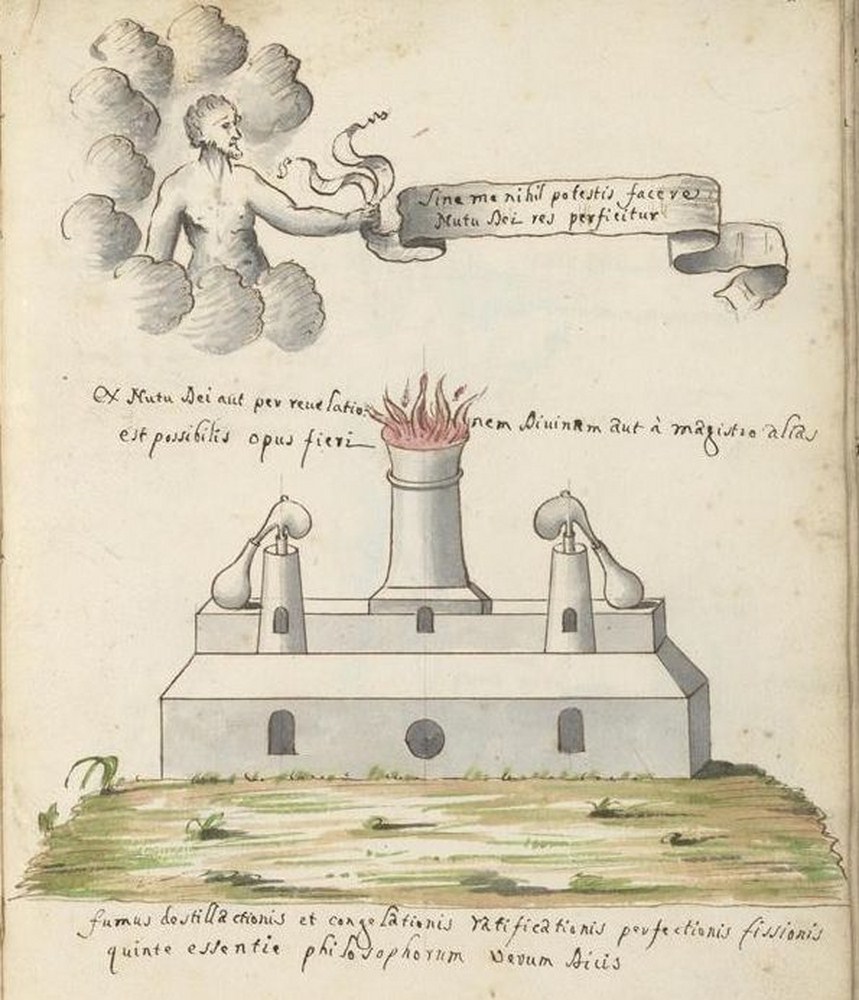 Sine me nihil potestis facere
Nutu Dei res perficitur
Ex Nutu Dei aut per reuelatio:nem Diuinam aut à magistro alias
est possibilis opus fieri
fumus destillactionis et congelationis ratificationis perfectionis fissionis
quinte essentie philosophorum verum Dicis